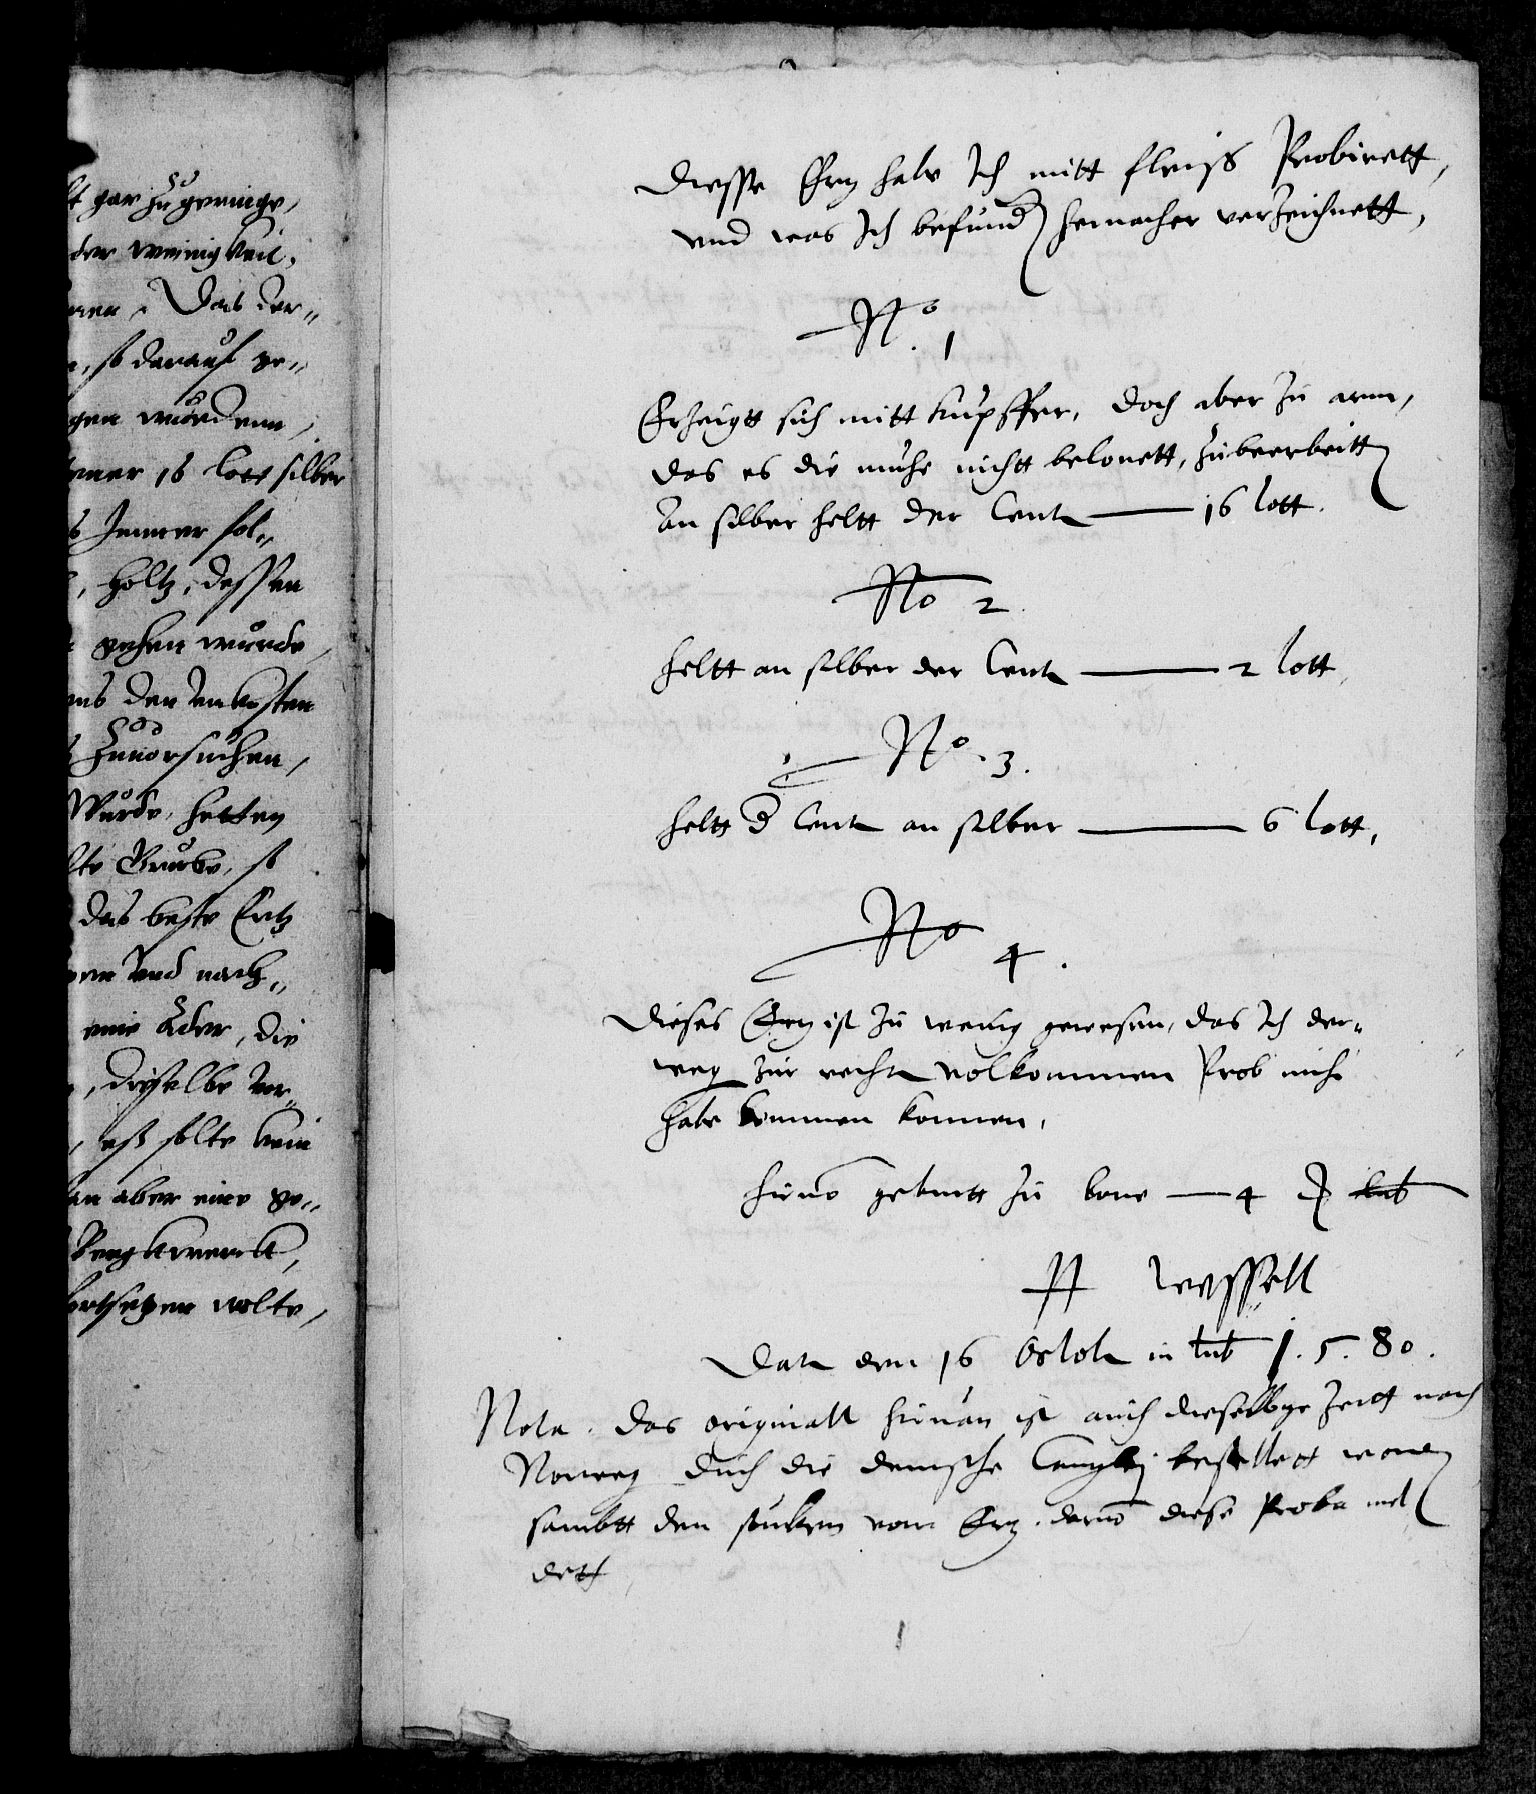 t gar zu geringe,
der weinigkeit,
Das der=
, so darauf ge=
gen wurdenn,
16 lott silber
Immer sol=
, Holtz, dessen
gehen wurde,
den Unkosten
Zuuorsuchen,
Wurde, hetten
lte Grube, so
das beste Ertz
Vnd nach=
eine Ader, die
, dieselbe ver=
, ess solte kein
aber eine ge=
Bergkwerck,
fortsetzen wolte,
Diesse Ertz habe Ich mitt fleiss Probirett,
vnd was Ich befund hernacher verzeichnett,
No. 1
Erzeigtt sich mitt kupffer, doch aber zu arm,
das es die muhe nichtt belonett, zubeerbeitt
An silber heltt der Cent — 16 lott.
No 2.
Heltt an silber der Cent — 2 lott.
No. 3.
Heltt d Cent an silber — 6 lott,
No 4.
Dieses Ertz ist zu wenig gewesenn, das Ich der=
weg zur recht volkommen Prob nicht
habe kommen konnen,
hiruo geburtt zu lone — 4 lub
H Wessell
Dat den 16 Octob in lub 1.5.80.
Nota. Das originall hieuan ist auch dieselbge Zeitt nach
Norweg durch die deutsche Cantzlej bestellett worden
sambtt den stucken vom Ertz. daruo diese Proba mel
dett,